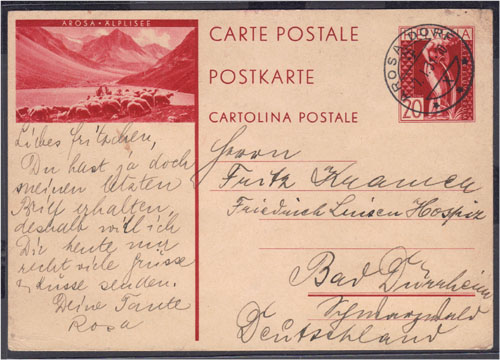 AROSA - ALPLISEE
CARTE POSTALE
POSTKARTE
CARTOLINA POSTALE
HELVETIA
20
AROSA DORF
Liebes Fritzchen,
Du hast ja doch
meinen letzten
Brief erhalten,
deshalb will ich
Dir heute nur
recht viele Grüsse
& Küsse senden.
Deine Tante
Rosa
Herrn
Fritz
Friedrich Luisen Hospiz
Bad Dürrheim
Schwarzwald
Deutschland